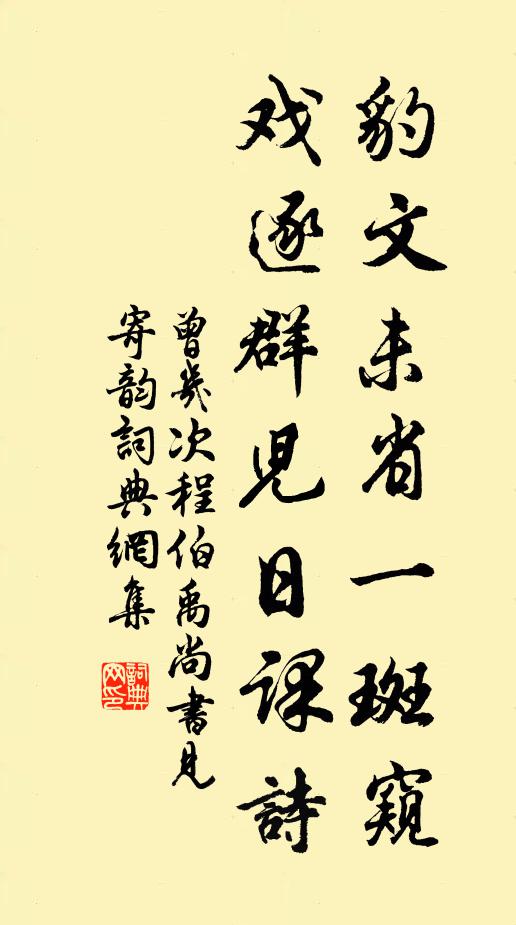 豹文未省一斑窺
戏逐群兒日课詩
曾幾次程伯禹尚書見
寄韵詞典網集
詞典
网印